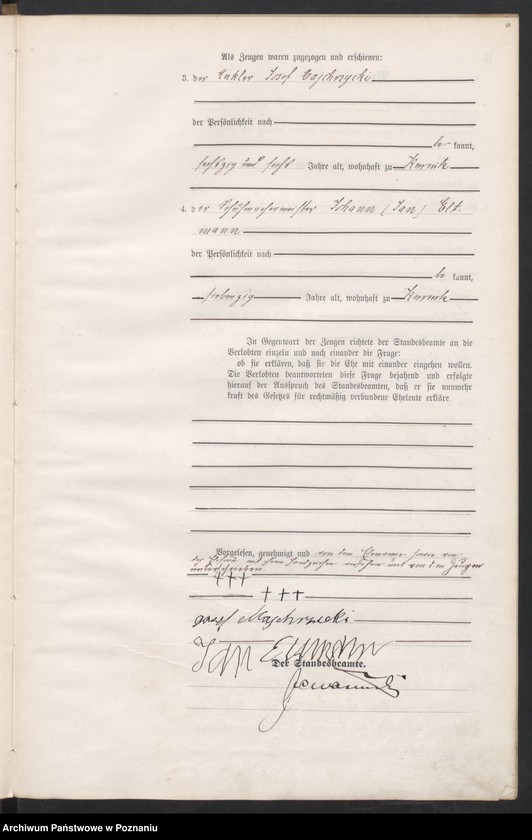 Als Zeugen waren zugezogen und erschienen:
3. der Josef
der Persönlichkeit nach
be kannt,
sechszig und sechs Jahre alt, wohnhaft zu Kurnik
4. der Schuhmachermeister Johann (Jan) Elt
mann
der Persönlichkeit nach
be kannt,
siebenzig Jahre alt, wohnhaft zu Kurnik
In Gegenwart der Zeugen richtete der Standesbeamte an die
Verlobten einzeln und nach einander die Frage:
ob sie erklären, daß sie die Ehe mit einander eingehen wollen.
Die Verlobten beantworteten diese Frage bejahend und erfolgte
hierauf der Ausspruch des Standesbeamten, daß er sie nunmehr
kraft des Gesetzes für rechtmäßig verbundene Eheleute erkläre.
Vorgelesen, genehmigt und von dem Ehemanne sowie von
der Ehefrau mit ihren Handzeichen versehen und von den Zeugen
unterschrieben.
+++
+++
Josef Majchrzicki
Jan
Der Standesbeamte.
Archiwum Państwowe w Poznaniu